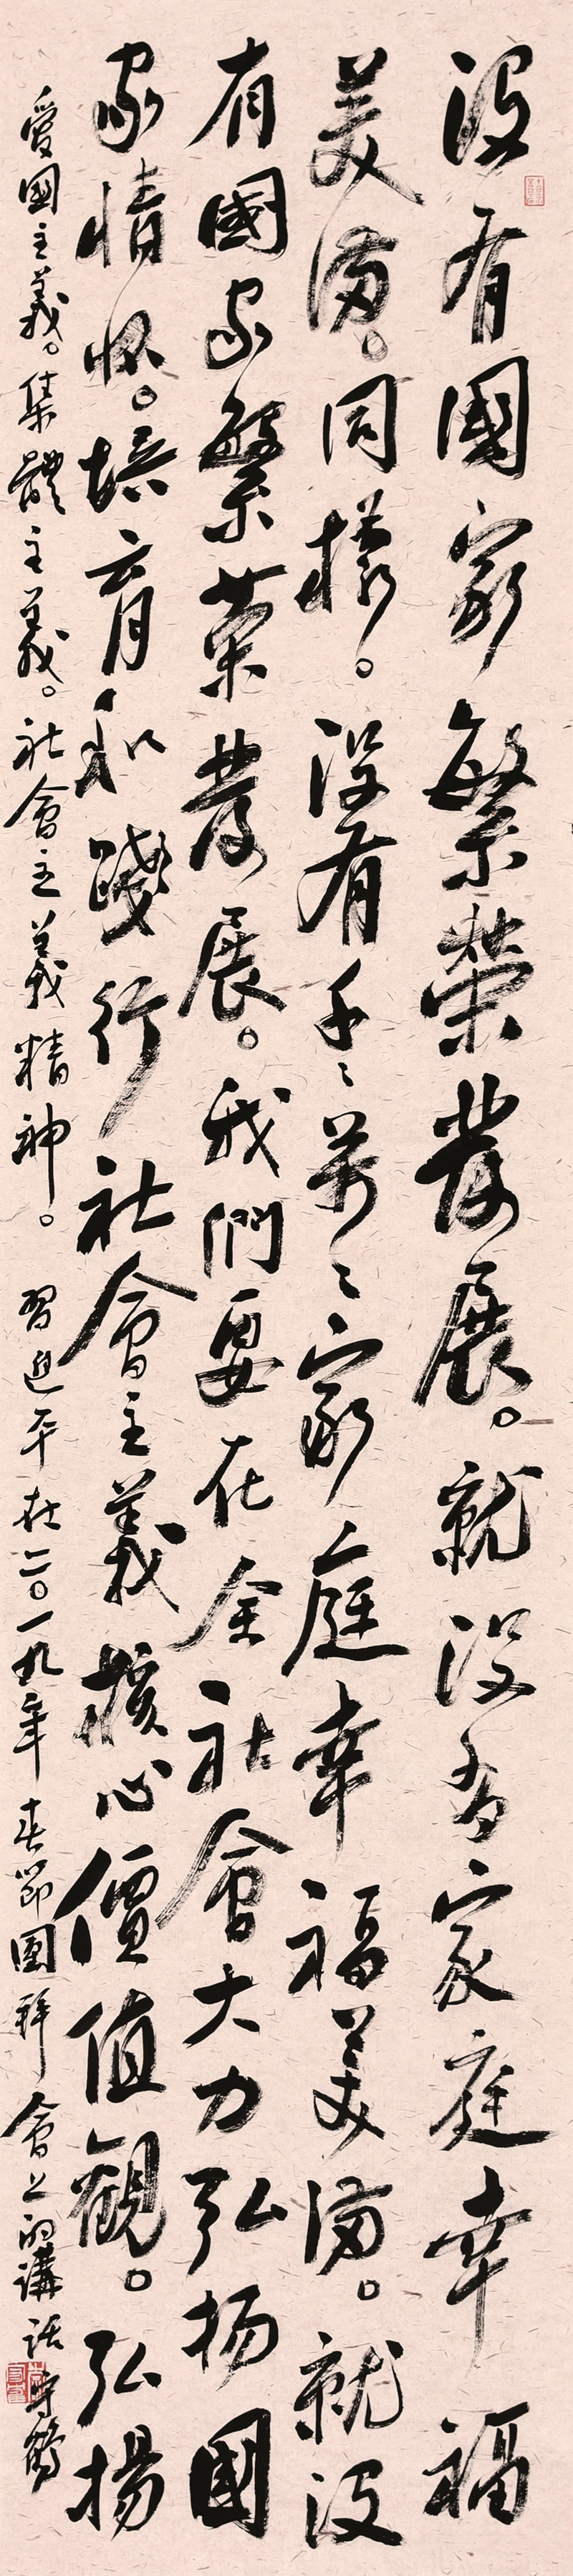 没有國家繁榮發展。就没有家庭幸福
美滿。同樣。没有千々萬々家庭幸福美滿。就没
有國家繁榮發展。我們要在全社會大力弘扬國
家情怀。培育和踐行社會主義核心價值觀。弘揚
愛國主義。集體主義。社會主義精神。習近平在二〇一九年春節團拜會上的講話 守鶴